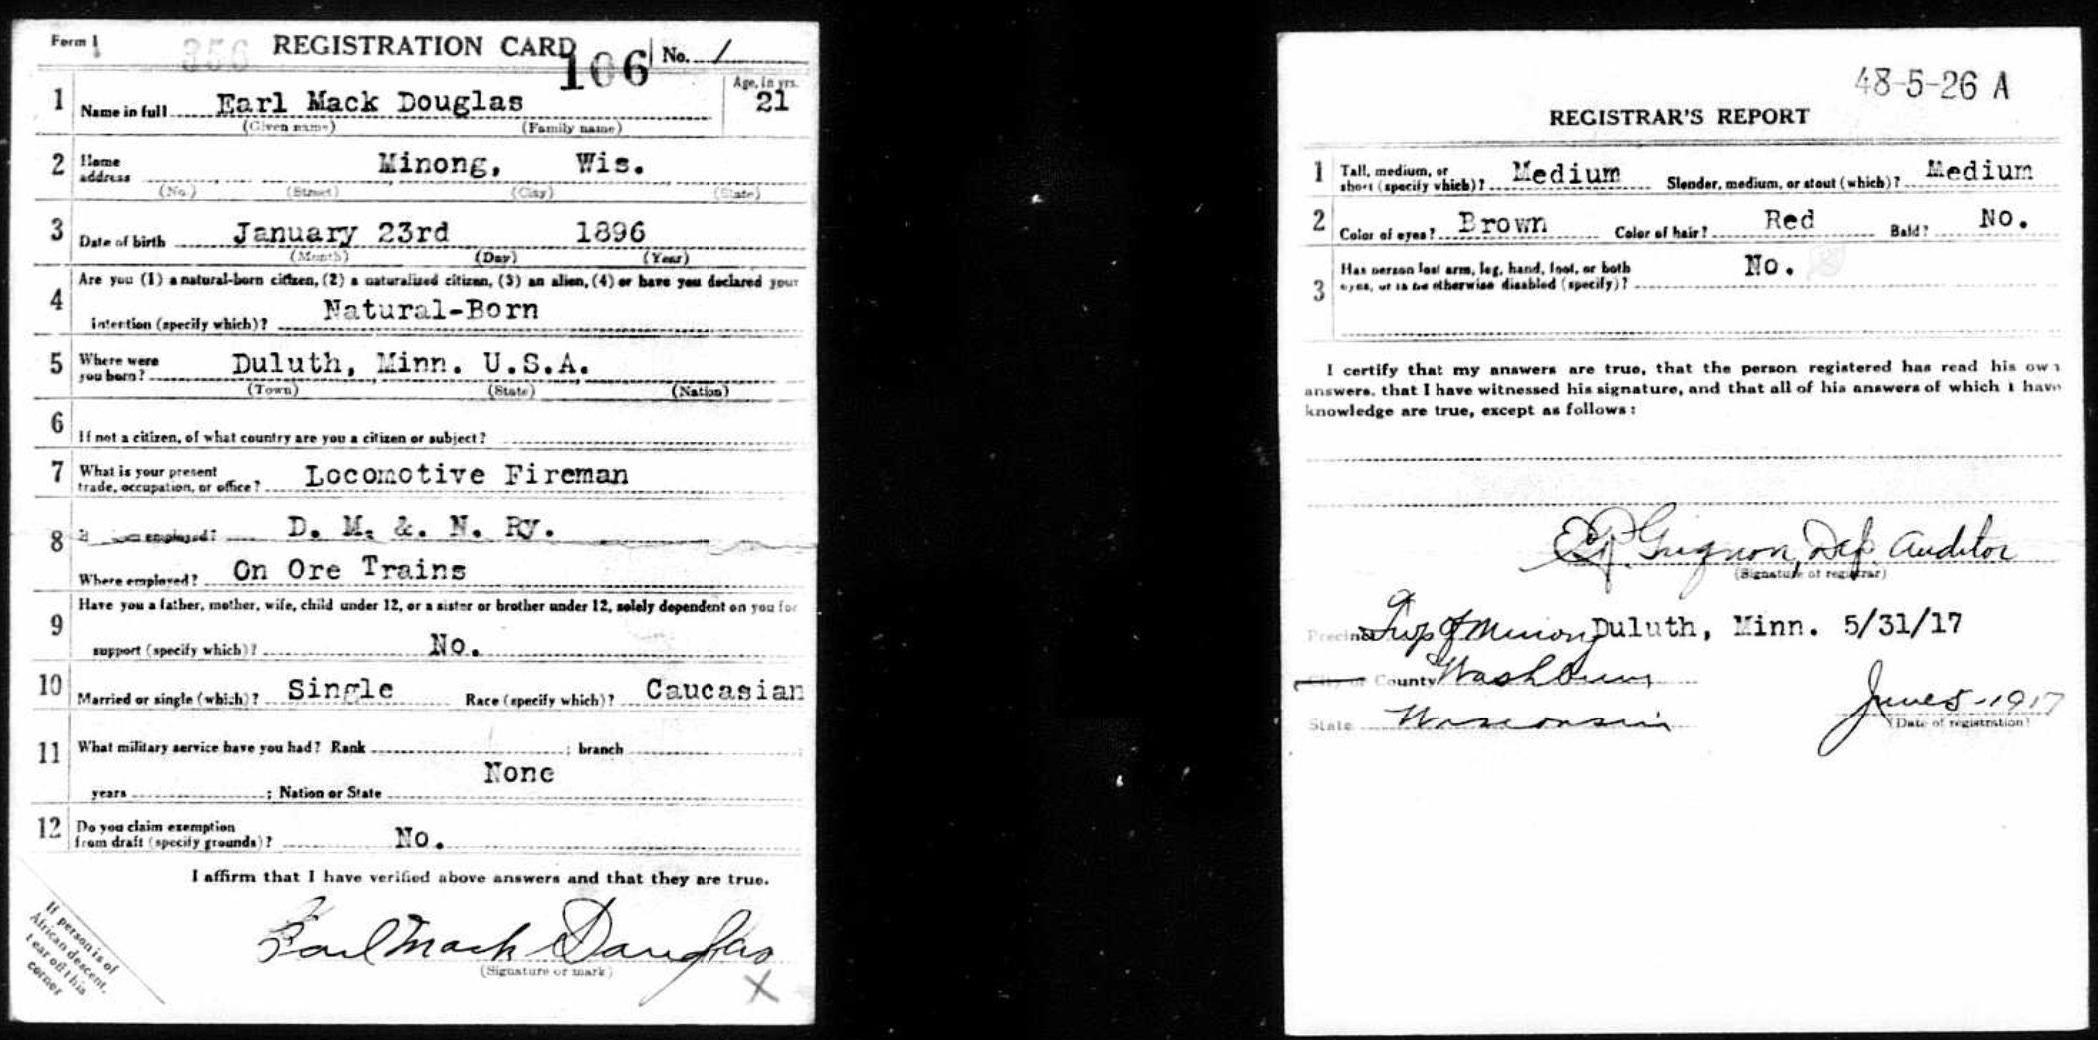 Form 1 356 REGISTRATION CARD 106 No. 1
1 Name in full Earl Mack Douglas Age, in yrs. 21
(Given name) (Family name)
2 Home address Minong, Wis.
(No.) (Street) (City) (State)
3 Date of birth January 23rd 1896
(Month) (Day) (Year)
4 Are you (1) a natural-born citizen, (2) a naturalized citizen, (3) an alien, (4) or have you declared your
intention (specify which)? Natural-Born
5 Where were you born? Duluth, Minn. U.S.A.
(Town) (State) (Nation)
6 If not a citizen, of what country are you a citizen or subject?
7 What is your present trade, occupation, or office? Locomotive Fireman
8 employed? D. M. &. N. Ry.
Where employed? On Ore Trains
9 Have you a father, mother, wife, child under 12, or a sister or brother under 12, solely dependent on you for
support (specify which)? No.
10 Married or single (which)? Single Race (specify which)? Caucasian
11 What military service have you had? Rank ; branch
None
years ; Nation or State
12 Do you claim exemption from draft (specify grounds)? No.
I affirm that I have verified above answers and that they are true.
Earl Mack Douglas
(Signature or mark)
X
If person is of
African descent,
tear off this
corner
48-5-26 A
REGISTRAR'S REPORT
1 Tall, medium, or short (specify which)? Medium Slender, medium, or stout (which)? Medium
2 Color of eyes? Brown Color of hair? Red Bald? No.
3 Has person lost arm, leg, hand, foot, or both eyes, or is he otherwise disabled (specify)? No.
I certify that my answers are true, that the person registered has read his own
answers, that I have witnessed his signature, and that all of his answers of which I have
knowledge are true, except as follows:
Grignon, Dep. Auditor
(Signature of registrar)
Precinct Twp of Minong Duluth, Minn. 5/31/17
City or County Washburn
State Wisconsin June 5-1917
(Date of registration)